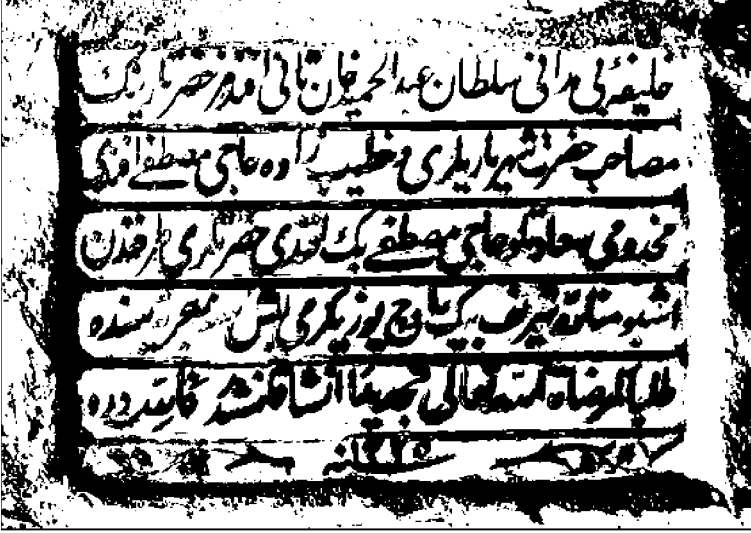 خليفۀ بى مدانى سلطان عبد الحميد خان ثانى افندمز حضرتلرينك
مصاحب حضرت شهرياريلرى وخطيب زاده حاجى مصطفى افندى
مخدومى سعادتلو حاجى مصطفى بك افندى حضرتلرى طرفندن
اشبو مناره شريف بيك اوچ يوز يكرمى بش سنه
طلبا لمرضاة الله تعالى تجديدا انشا قلنمشدر
سنه ١٣٢٥